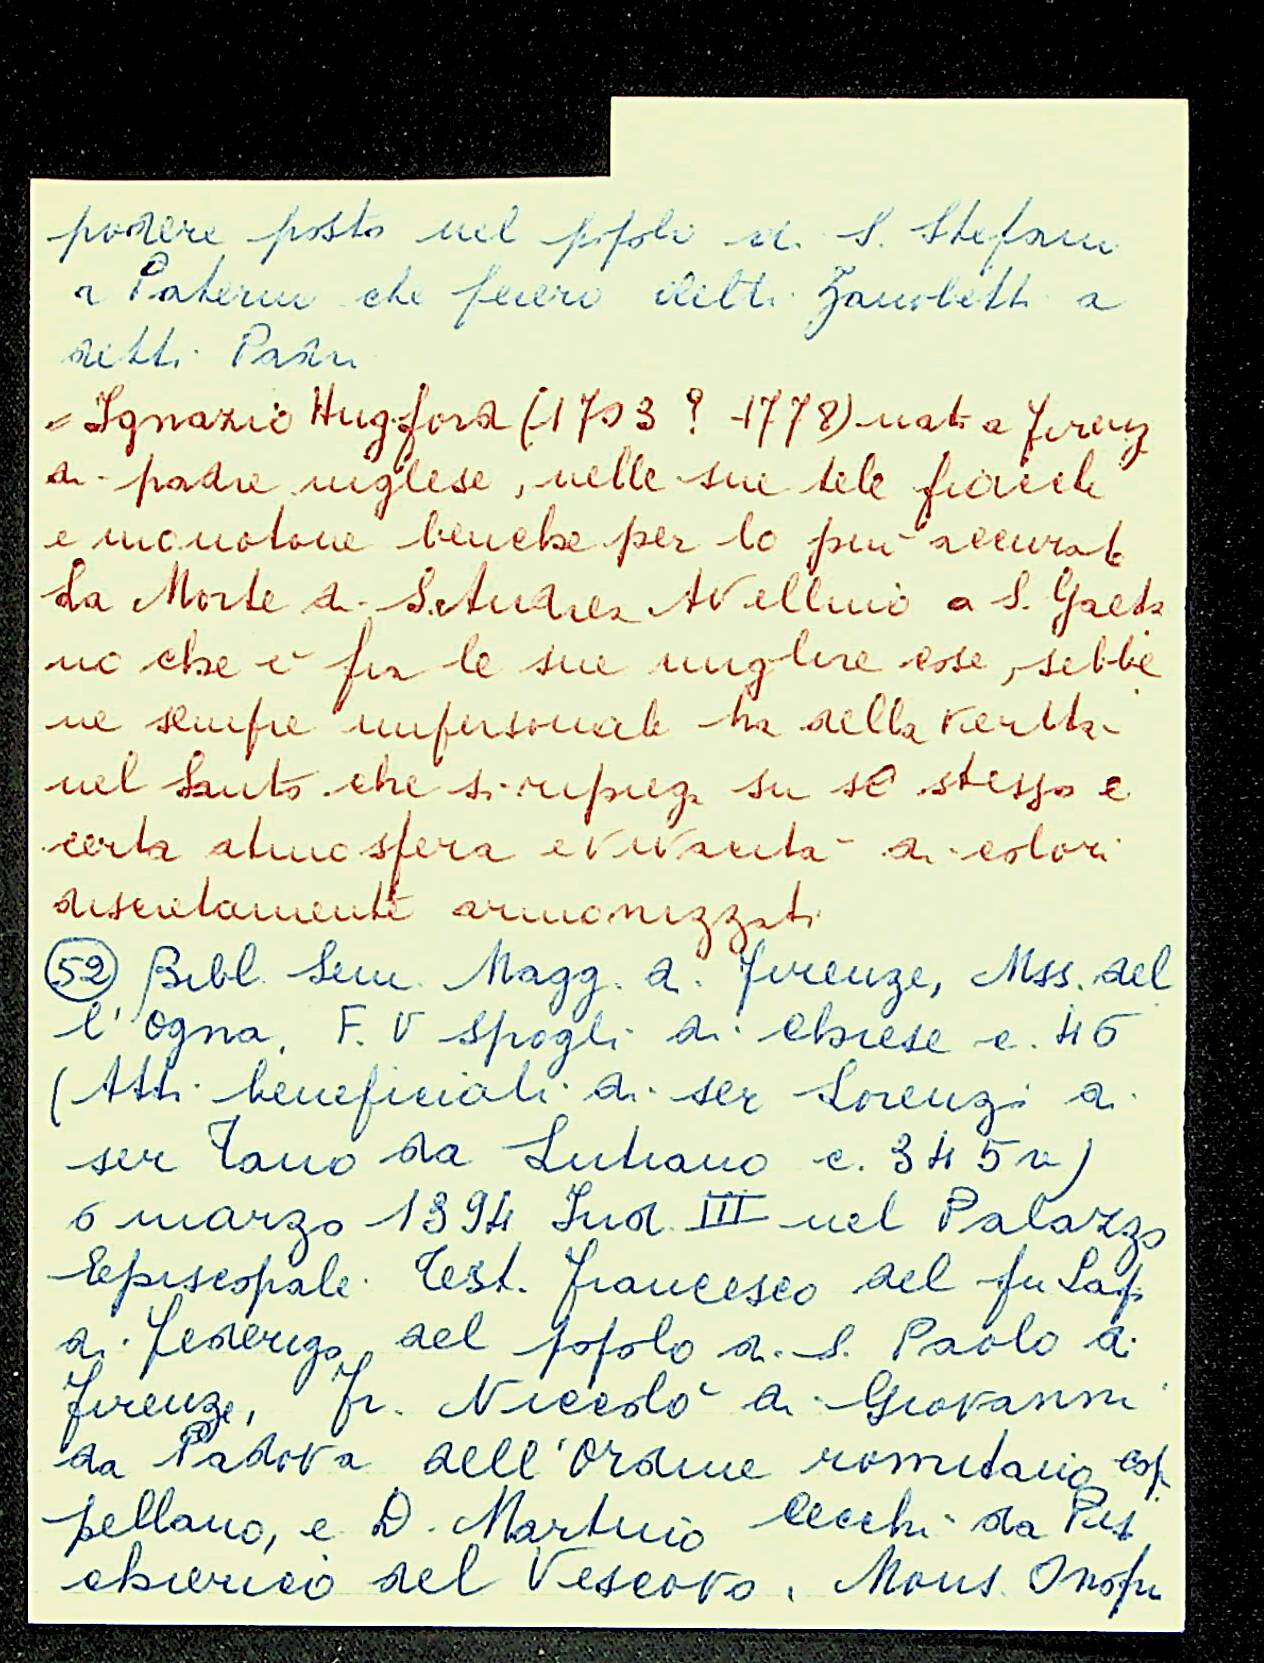 podere posto nel popolo di S. Stefano
a Paterno che fecero detti Zanobetti a
detti Padri
= Ignazio Hugford (1703 ? -1778) nato a Firenze
di padre inglese, nelle sue tele fiacche
e monotone benche per lo più accurate
La Morte di S. Andrea Avellino a S. Gaeta
no che è fra le sue migliore cose, sebbe
ne sempre impersonale ha della verità
nel Santo che si ripiega su se stesso e
certa atmosfera e vivacità di colori
discretamente armonizzati
(52) Bibl. Sem. Magg. di Firenze, Mss. del
l'Ogna, F. V spogli di chiese c. 46
(Atti beneficiali di ser Lorenzo di
ser Tano da Lutiano c. 345 v)
6 marzo 1394 Ind III nel Palazzo
Episcopale. Test. Francesco del fu Lapo
di Federigo del popolo di S. Paolo di
Firenze, Fr. Niccolò di Giovanni
da Padova dell'Ordine romitano cap
pellano, e D. Martino Cecchi da
chierico del Vescovo. Mons. Onofri